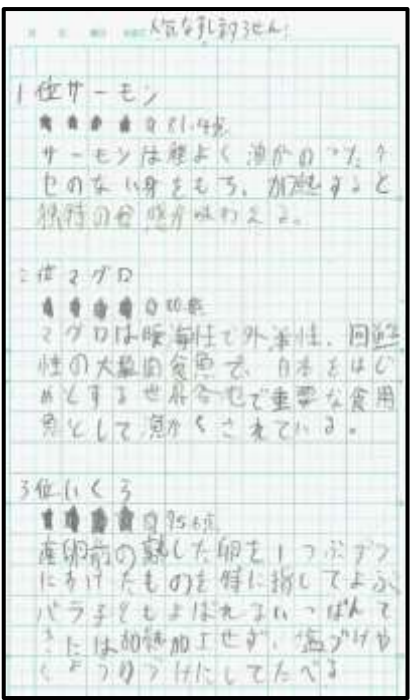 人気なすし ネタ3せん!
1位サーモン
81.4点
サーモンは程よく油がのった
せのない身をもち、加熱すると
独特の食感が味わえる。
2位マグロ
マグロは暖海性で外洋性、回遊
性の大型肉食魚で、日本をはじ
めとする世界各地で重要な食用
魚として魚かくされている。
3位いくら
75.6点
産卵前の熟した卵を1つぶずつ
にわけたものを特に指してよぶ。
バラ子ともよばれるいっぱんて
きには加熱加工せず、塩づけや
しょうゆづけにしてたべる